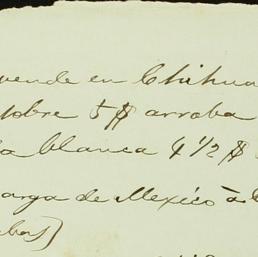 vende en Chihua
tobre 5 $ arroba
a blanca 4 1/2 $
arga de Mexico à
bas)